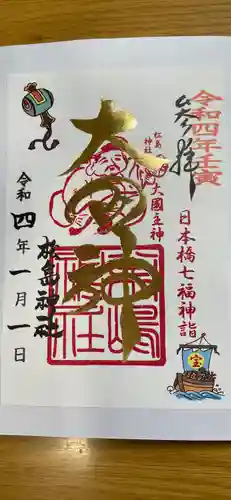 令和四年壬寅
参拝
日本橋七福神詣
宝
松島神社
大國主神
大黒神
松島神社
令和四年一月一日